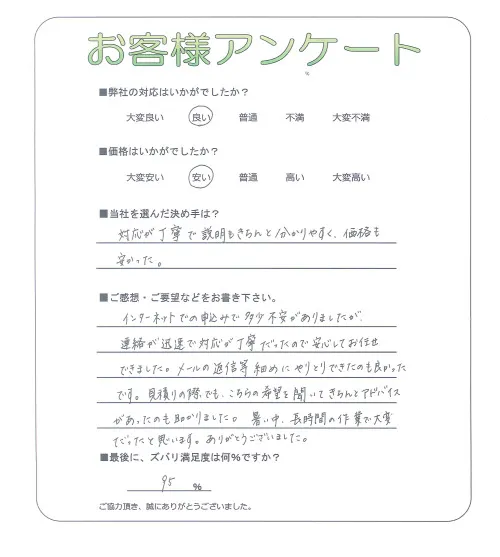 お客様アンケート
■弊社の対応はいかがでしたか？
大変良い 良い 普通 不満 大変不満
■価格はいかがでしたか？
大変安い 安い 普通 高い 大変高い
■当社を選んだ決め手は？
対応が丁寧で説明もきちんと分かりやすく、価格も
安かった。
■ご感想・ご要望などをお書き下さい。
インターネットでの申込みで多少不安がありましたが、
連絡が迅速で対応が丁寧だったので安心してお任せ
できました。メールの返信等細めにやりとりできたのも良かった
です。見積りの際でも、こちらの希望を聞いてきちんとアドバイス
があったのも助かりました。暑い中、長時間の作業で大変
だったと思います。ありがとうございました。
■最後に、ズバリ満足度は何%ですか？
95 %
ご協力頂き、誠にありがとうございました。